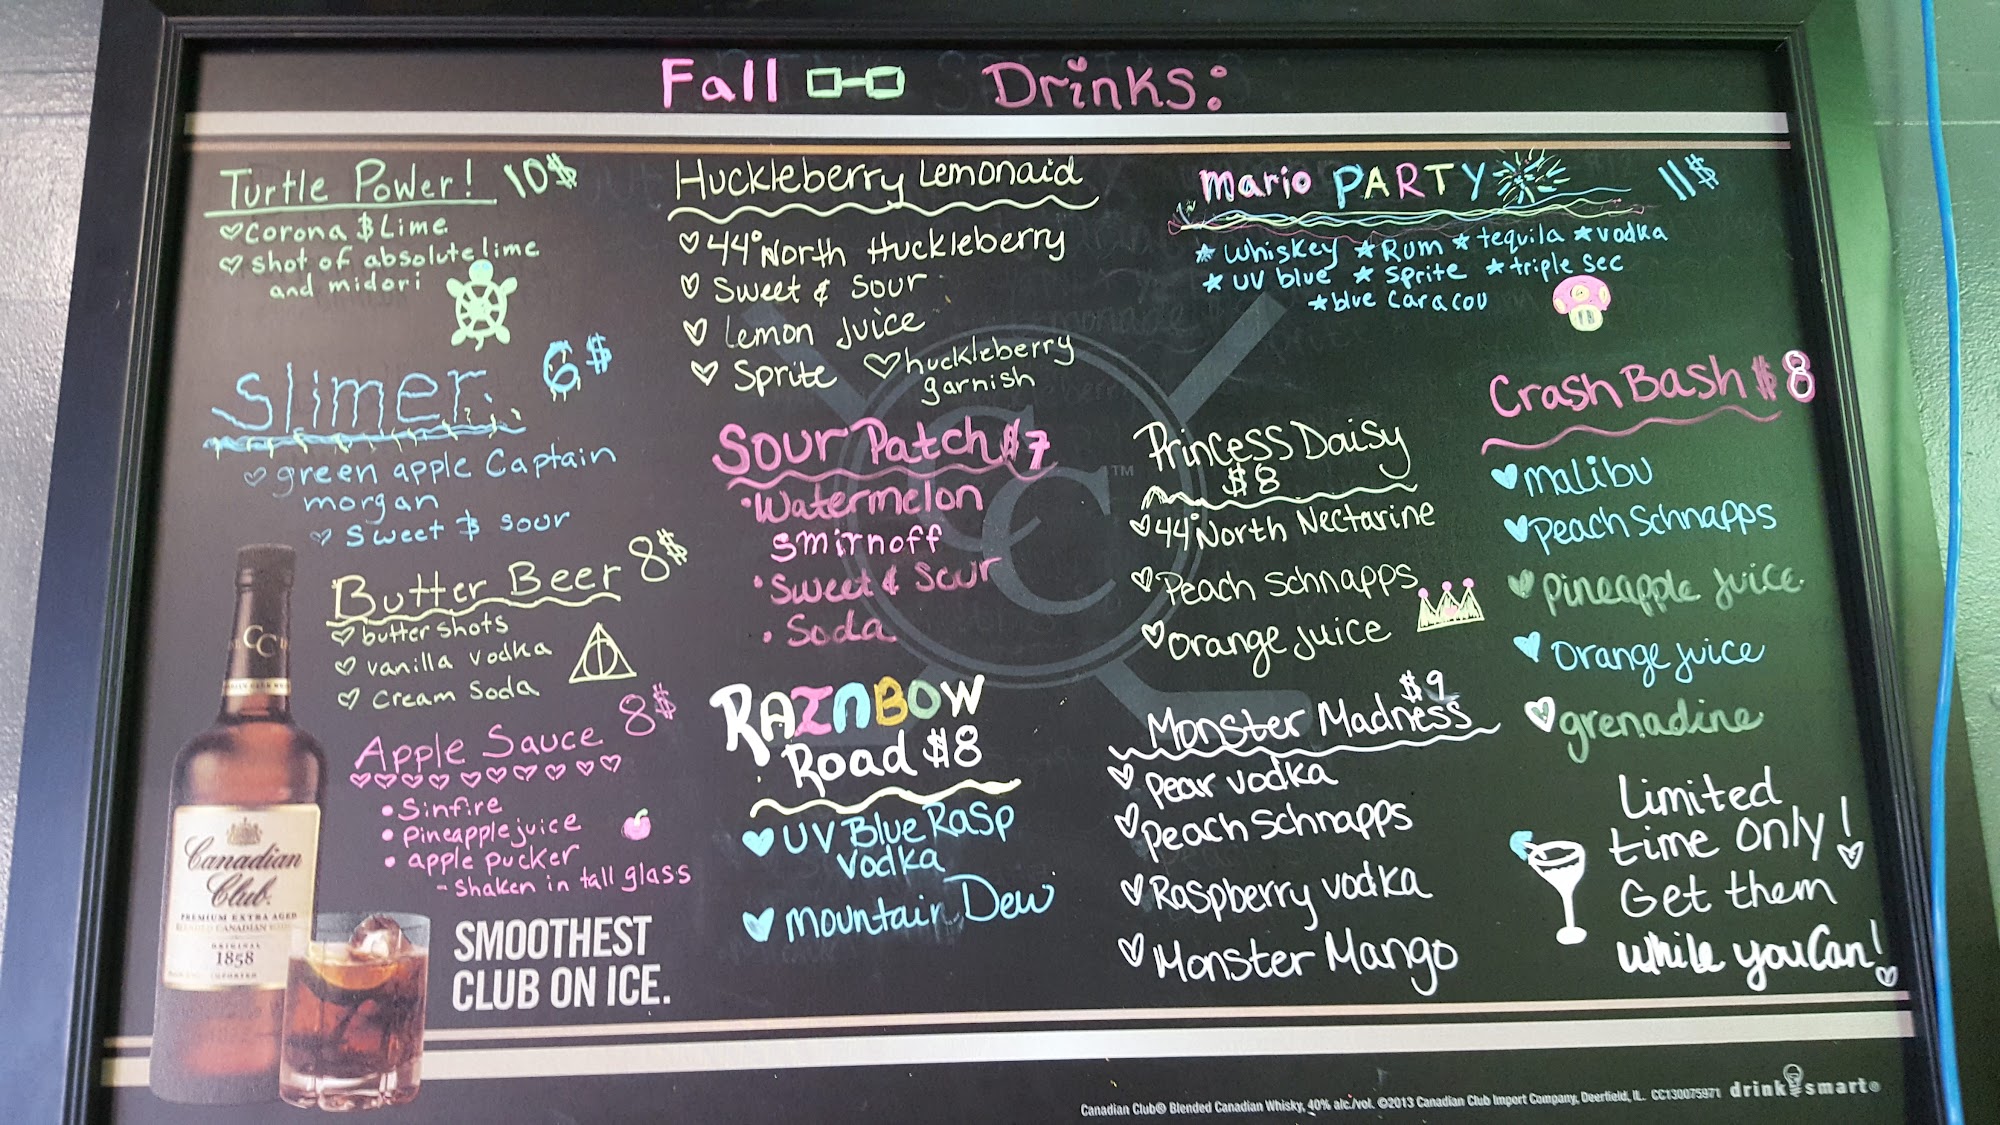 Fall Drinks:
Turtle Power! 10$
Corona & Lime
shot of absolute lime
and midori
Slimer 6$
green apple Captain
morgan
sweet & sour
Butter Beer 8$
butter shots
vanilla vodka
cream soda
Apple Sauce 8$
Sinfire
pineapple juice
apple pucker
- shaken in tall glass
Huckleberry Lemonaid
44° North Huckleberry
Sweet & Sour
lemon juice
Sprite
huckleberry
garnish
Sour Patch $7
Watermelon
Smirnoff
Sweet & Sour
Soda
RAINBOW
Road $8
UV Blue Rasp
Vodka
Mountain Dew
Mario PARTY 11$
Whiskey Rum tequila vodka
UV blue Sprite triple sec
blue Caracou
Princess Daisy
$8
44° North Nectarine
Peach Schnapps
Orange juice
Monster Madness $9
Pear vodka
Peach Schnapps
Raspberry vodka
Monster Mango
Crash Bash $8
Malibu
Peach Schnapps
Pineapple juice
Orange juice
grenadine
Limited
time only!
Get them
while you can!
CC™
CC
Canadian
Club.
PREMIUM EXTRA AGED
BLENDED CANADIAN WHISKY
ORIGINAL
1858
IMPORTED
SMOOTHEST
CLUB ON ICE.
Canadian Club® Blended Canadian Whisky, 40% alc./vol. ©2013 Canadian Club Import Company, Deerfield, IL. CC130075971 drink smart®